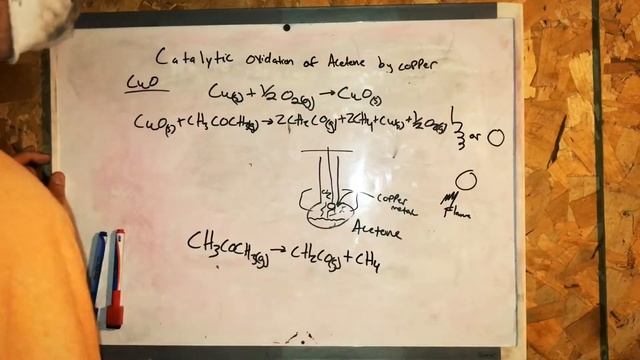 Catalytic oxidation of Acetone by copper
CuO
Cu(s) + 1/2 O2(g) → CuO(s)
CuO(s) + CH3COCH3(g) → 2CH2CO(g) + 2CH4 + Cu(s) + 1/2 O2(g) or
copper
metal
flame
Acetone
CH3COCH3(g) → CH2CO(g) + CH4